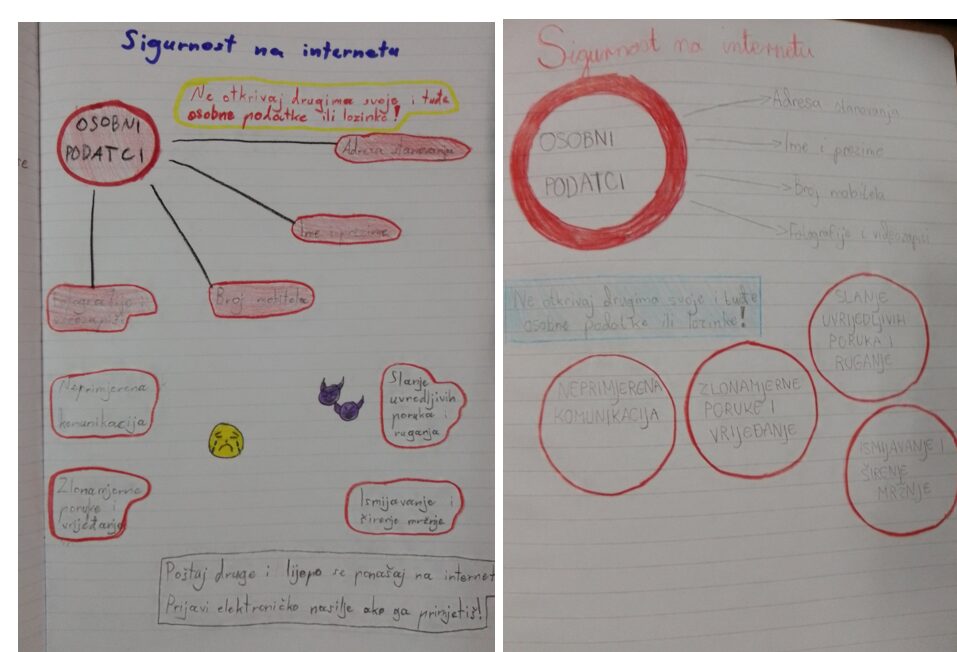 Sigurnost na internetu
Ne otkrivaj drugima svoje i tuđe
osobne podatke ili lozinke!
OSOBNI
PODATCI
Adresa stanovanja
Ime i prezime
Broj mobitela
Fotografije i
videozapisi
Neprimjerena
komunikacija
Slanje
uvredljivih
poruka i
ruganja
Zlonamjerne
poruke i
vrijeđanje
Ismijavanje i
širenje mržnje
Poštuj druge i lijepo se ponašaj na internet
Prijavi elektroničko nasilje ako ga primjetiš!
Sigurnost na internetu
OSOBNI
PODATCI
Adresa stanovanja
Ime i prezime
Broj mobitela
Fotografije i videozapisi
Ne otkrivaj drugima svoje i tuđe
osobne podatke ili lozinke!
SLANJE
UVRIJEDLJIVIH
PORUKA I
RUGANJE
NEPRIMJERENA
KOMUNIKACIJA
ZLONAMJERNE
PORUKE I
VRIJEĐANJE
ISMIJAVANJE I
ŠIRENJE
MRŽNJE